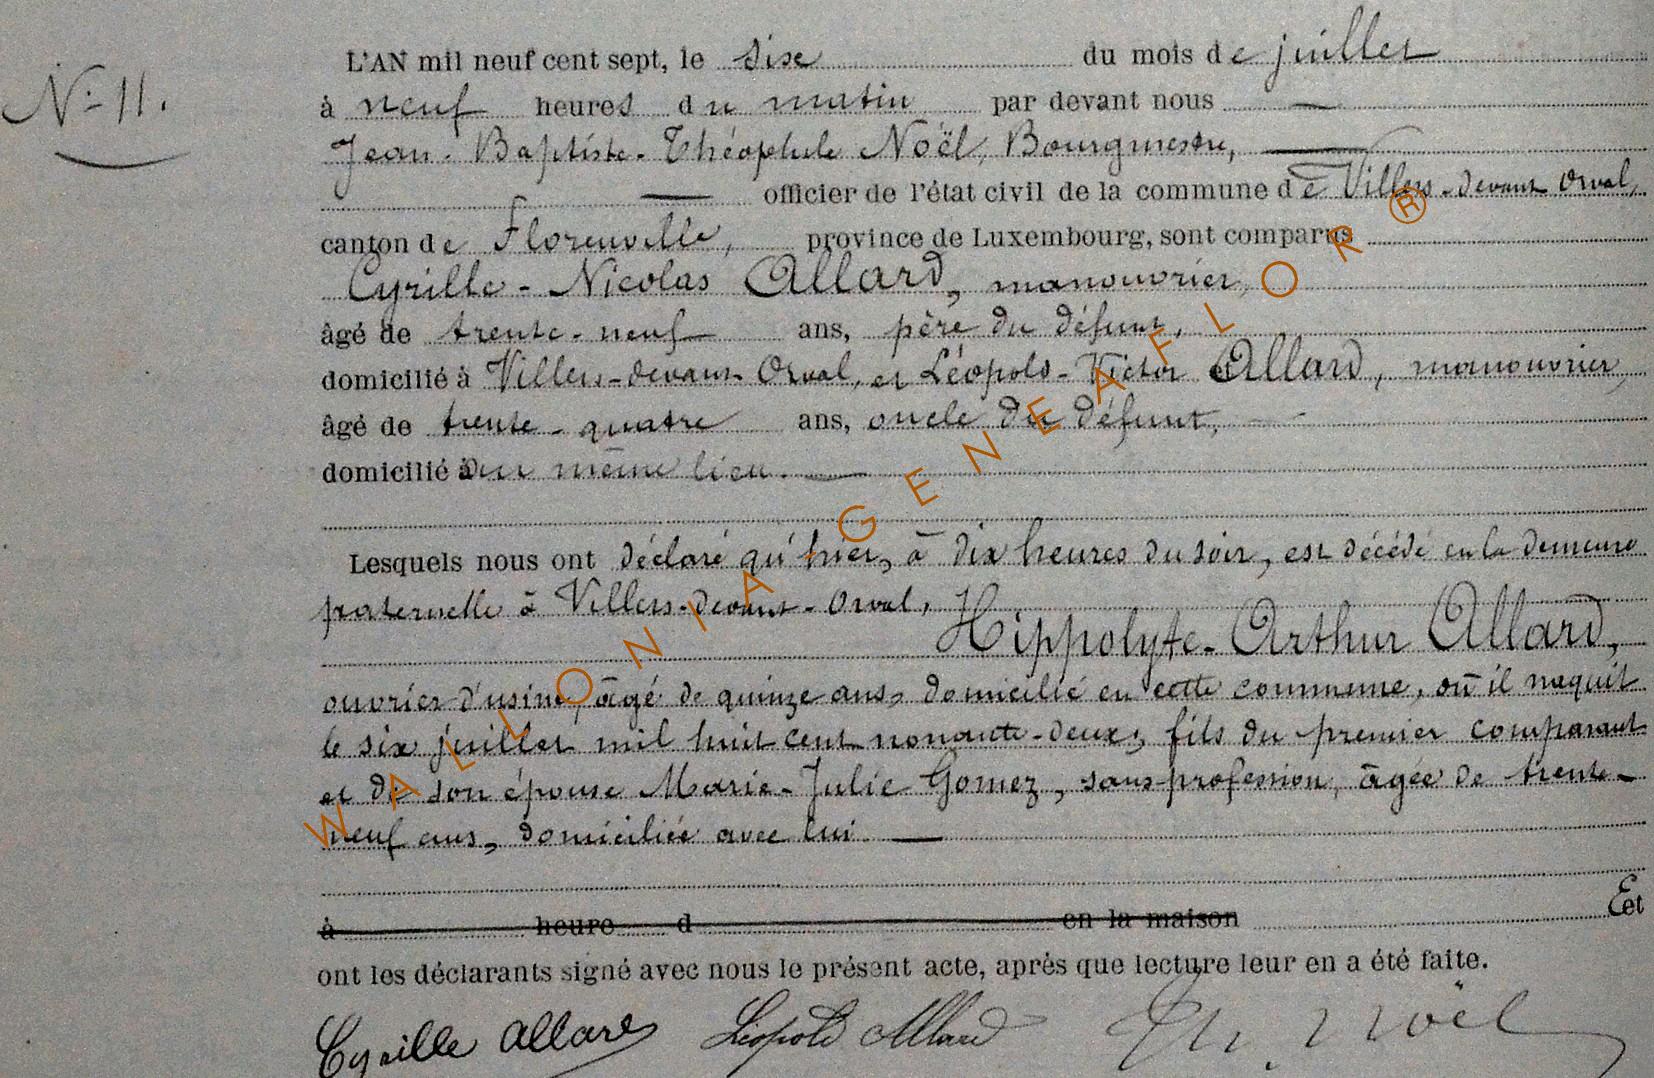 N° 11.
L'AN mil neuf cent sept, le six du mois de juillet
à neuf heures du matin par devant nous
Jean-Baptiste-Théophile Noël, Bourgmestre,
officier de l'état civil de la commune de Villers-devant Orval,
canton de Florenville, province de Luxembourg, sont comparus
Cyrille-Nicolas Allard, manouvrier,
âgé de trente-neuf ans, père du défunt,
domicilié à Villers-devant-Orval, et Léopold-Victor Allard, manouvrier,
âgé de trente-quatre ans, oncle du défunt,
domicilié au même lieu.
Lesquels nous ont déclaré qu'hier, à dix heures du soir, est décédé en la demeure
paternelle à Villers-devant-Orval,
Hippolyte-Arthur Allard,
ouvrier d'usine, âgé de quinze ans, domicilié en cette commune, où il naquit
le six juillet mil huit cent nonante-deux; fils du premier comparant
et de son épouse Marie-Julie Gomez, sans profession, âgée de trente-
neuf ans, domiciliée avec lui.
à heure d en la maison Et et
ont les déclarants signé avec nous le présent acte, après que lecture leur en a été faite.
Cyrille Allard Léopold Allard Th. Noël
WALLONIA-GENEAFLOR®